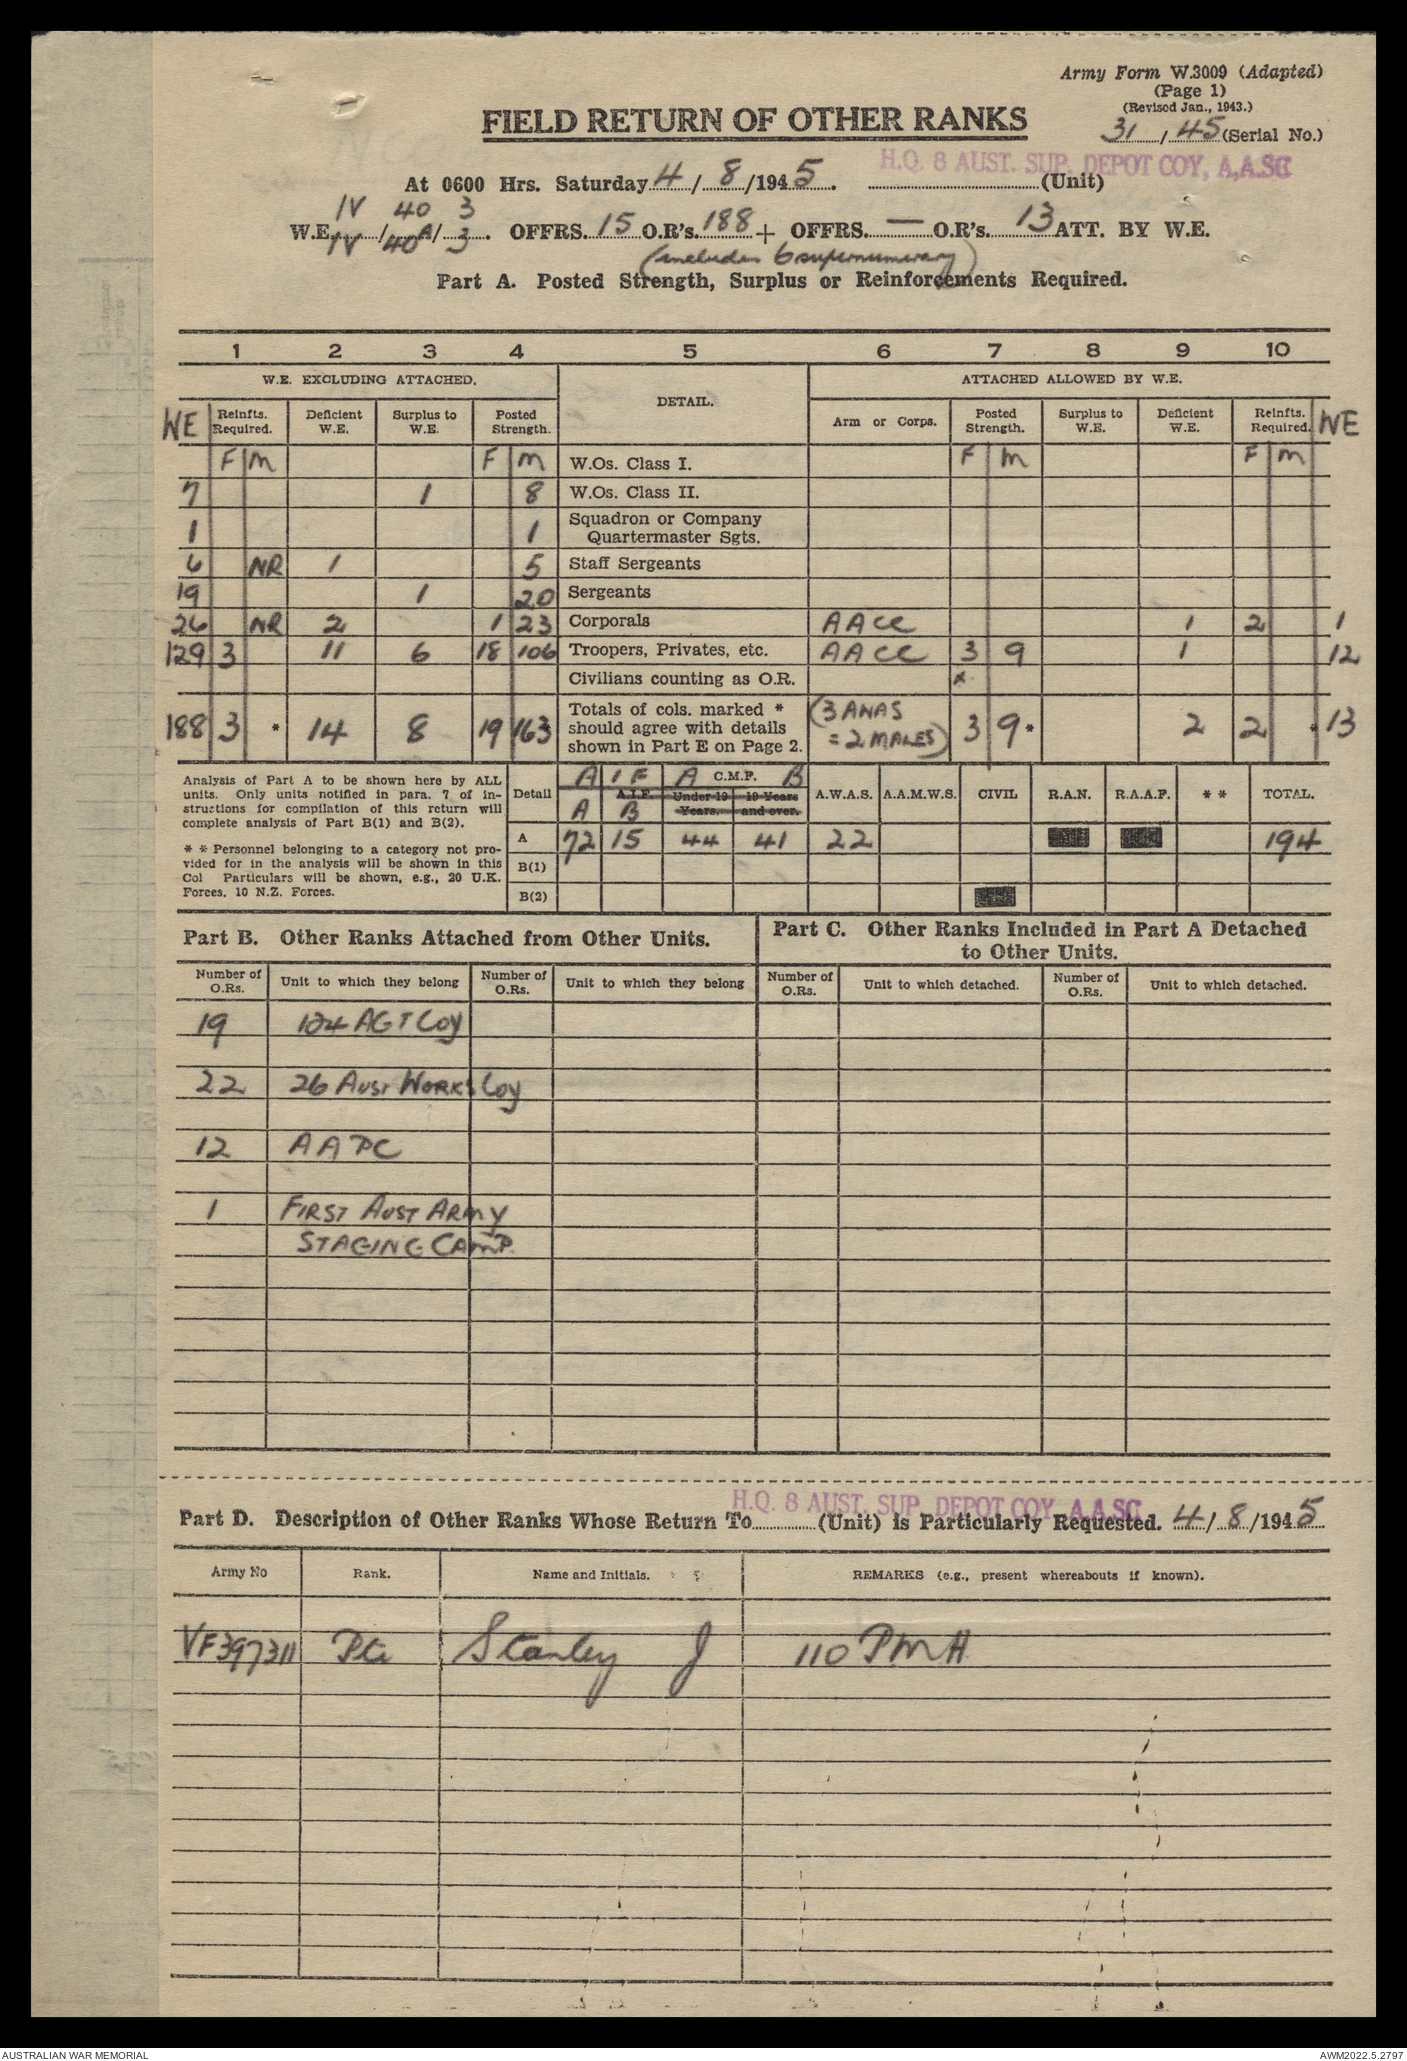 Army Form W.3009 (Adapted)
(Page 1)
(Revised Jan., 1943.)
FIELD RETURN OF OTHER RANKS
31 / 45 (Serial No.)
H.Q. 8 AUST. SUP. DEPOT COY, A.A.SC
At 0600 Hrs. Saturday 4 / 8 /1945. (Unit)
IV 40 3
W.E. / / . OFFRS. 15 O.R's. 188 + OFFRS. — O.R's. 13 ATT. BY W.E.
IV 40A 3
(includes 6 supernumerary)
Part A. Posted Strength, Surplus or Reinforcements Required.
1 2 3 4 5 6 7 8 9 10
W.E. EXCLUDING ATTACHED. DETAIL. ATTACHED ALLOWED BY W.E.
WE Reinfts. Required. Deficient W.E. Surplus to W.E. Posted Strength. Arm or Corps. Posted Strength. Surplus to W.E. Deficient W.E. Reinfts. Required. WE
F M F M W.Os. Class I. F M F M
7 1 8 W.Os. Class II.
1 1 Squadron or Company Quartermaster Sgts.
6 NR 1 5 Staff Sergeants
19 1 20 Sergeants
26 NR 2 1 23 Corporals AACC 1 2 1
129 3 11 6 18 106 Troopers, Privates, etc. AACC 3 9 1 12
Civilians counting as O.R. x
188 3 * 14 8 19 163 Totals of cols. marked * should agree with details shown in Part E on Page 2. (3 AWAS = 2 MALES) 3 9 * 2 2 * 13
Analysis of Part A to be shown here by ALL
units. Only units notified in para. 7 of in-
structions for compilation of this return will
complete analysis of Part B(1) and B(2).
* * Personnel belonging to a category not pro-
vided for in the analysis will be shown in this
Col Particulars will be shown, e.g., 20 U.K.
Forces, 10 N.Z. Forces.
A IF A C.M.F. B
Detail A.I.F. Under 19 Years. 19 Years and over. A.W.A.S. A.A.M.W.S. CIVIL R.A.N. R.A.A.F. * * TOTAL.
A B
A 72 15 44 41 22 194
B(1)
B(2)
Part B. Other Ranks Attached from Other Units.
Part C. Other Ranks Included in Part A Detached
to Other Units.
Number of O.Rs. Unit to which they belong Number of O.Rs. Unit to which they belong Number of O.Rs. Unit to which detached. Number of O.Rs. Unit to which detached.
19 124 AGT Coy
22 26 AUST WORKS Coy
12 AAPC
1 FIRST AUST ARMY
STAGING CAMP.
H.Q. 8 AUST. SUP. DEPOT COY, A.A.SC
Part D. Description of Other Ranks Whose Return To (Unit) is Particularly Requested. 4 / 8 /1945
Army No Rank. Name and Initials. REMARKS (e.g., present whereabouts if known).
VF397311 Pte Stanley J 110 PMH
AUSTRALIAN WAR MEMORIAL AWM2022.5.2797